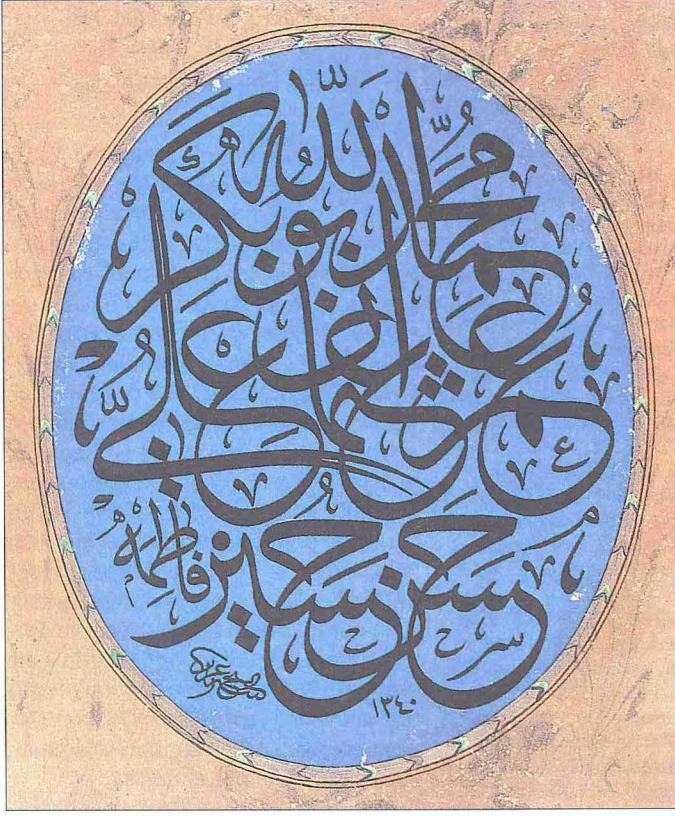 الله محمد
ابوبكر
عمر عثمان علي
حسن حسين فاطمه
١٣٤٠